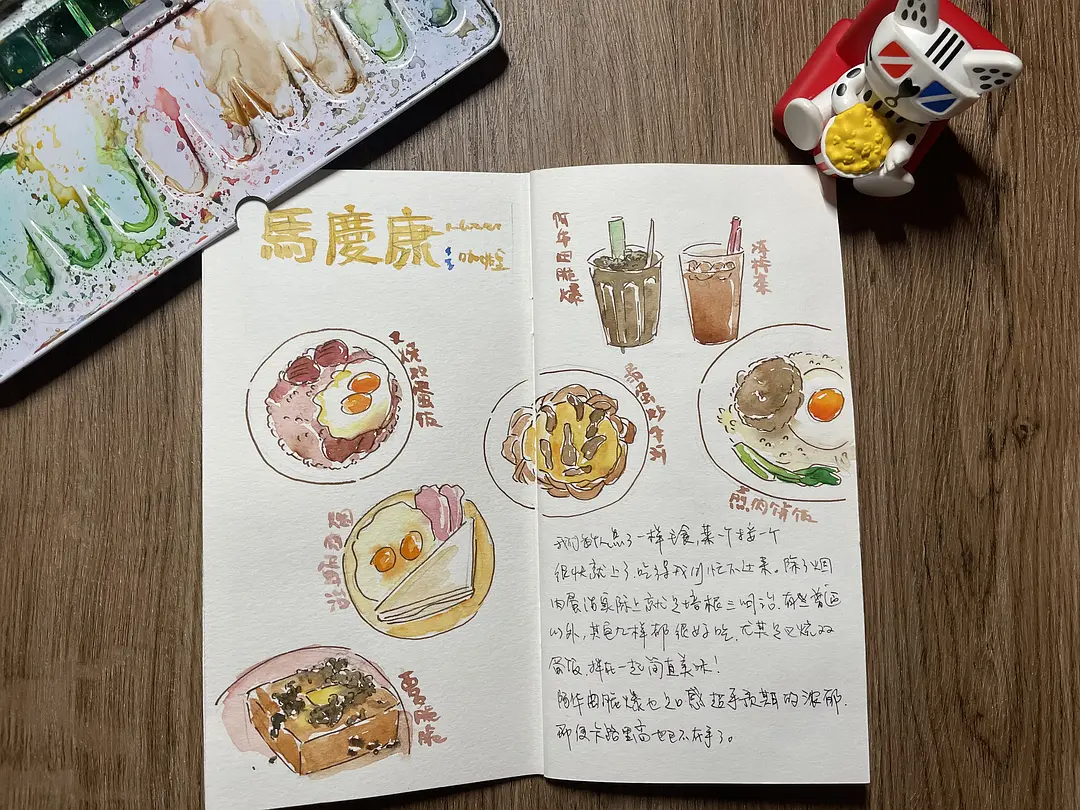 馬慶康
叉烧双蛋饭
阿华田脆爆
冻柠茶
煎肉饼饭
我们每人点了一样主食,菜一个接一个
很快就上了,吃得我们忙不过来。除了烟
肉实际上就是培根三明治,有些普通
以外,其它几样都很好吃,尤其是叉烧双
蛋饭,拌在一起简直美味!
阿华田脆爆也口感超乎预期的浓郁.
即便卡路里高也已不在乎了。